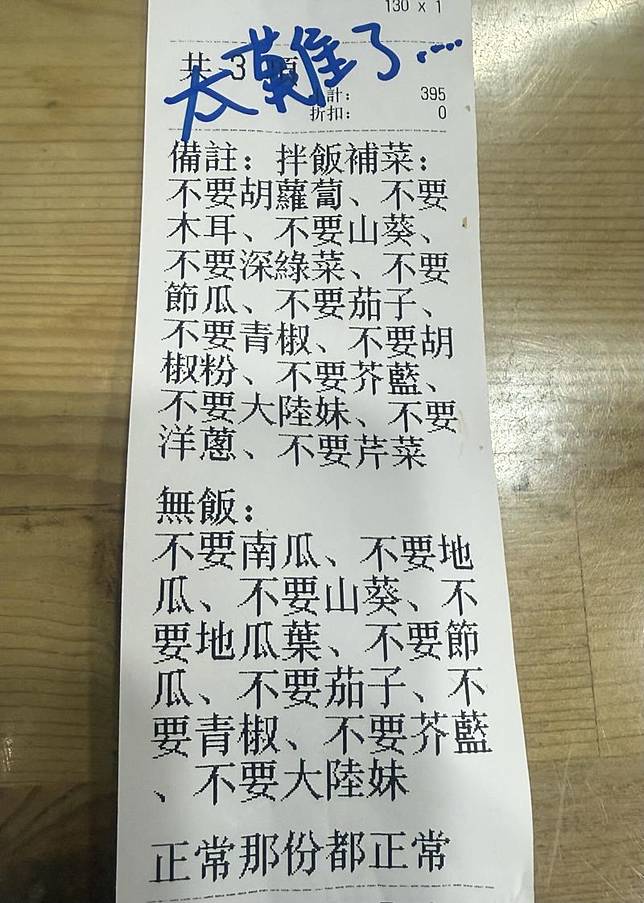 130 x 1
太難了....
共 3 項
計: 395
折扣: 0
備註: 拌飯補菜:
不要胡蘿蔔、不要
木耳、不要山葵、
不要深綠菜、不要
節瓜、不要茄子、
不要青椒、不要胡
椒粉、不要芥藍、
不要大陸妹、不要
洋蔥、不要芹菜
無飯:
不要南瓜、不要地
瓜、不要山葵、不
要地瓜葉、不要節
瓜、不要茄子、不
要青椒、不要芥藍
、不要大陸妹
正常那份都正常